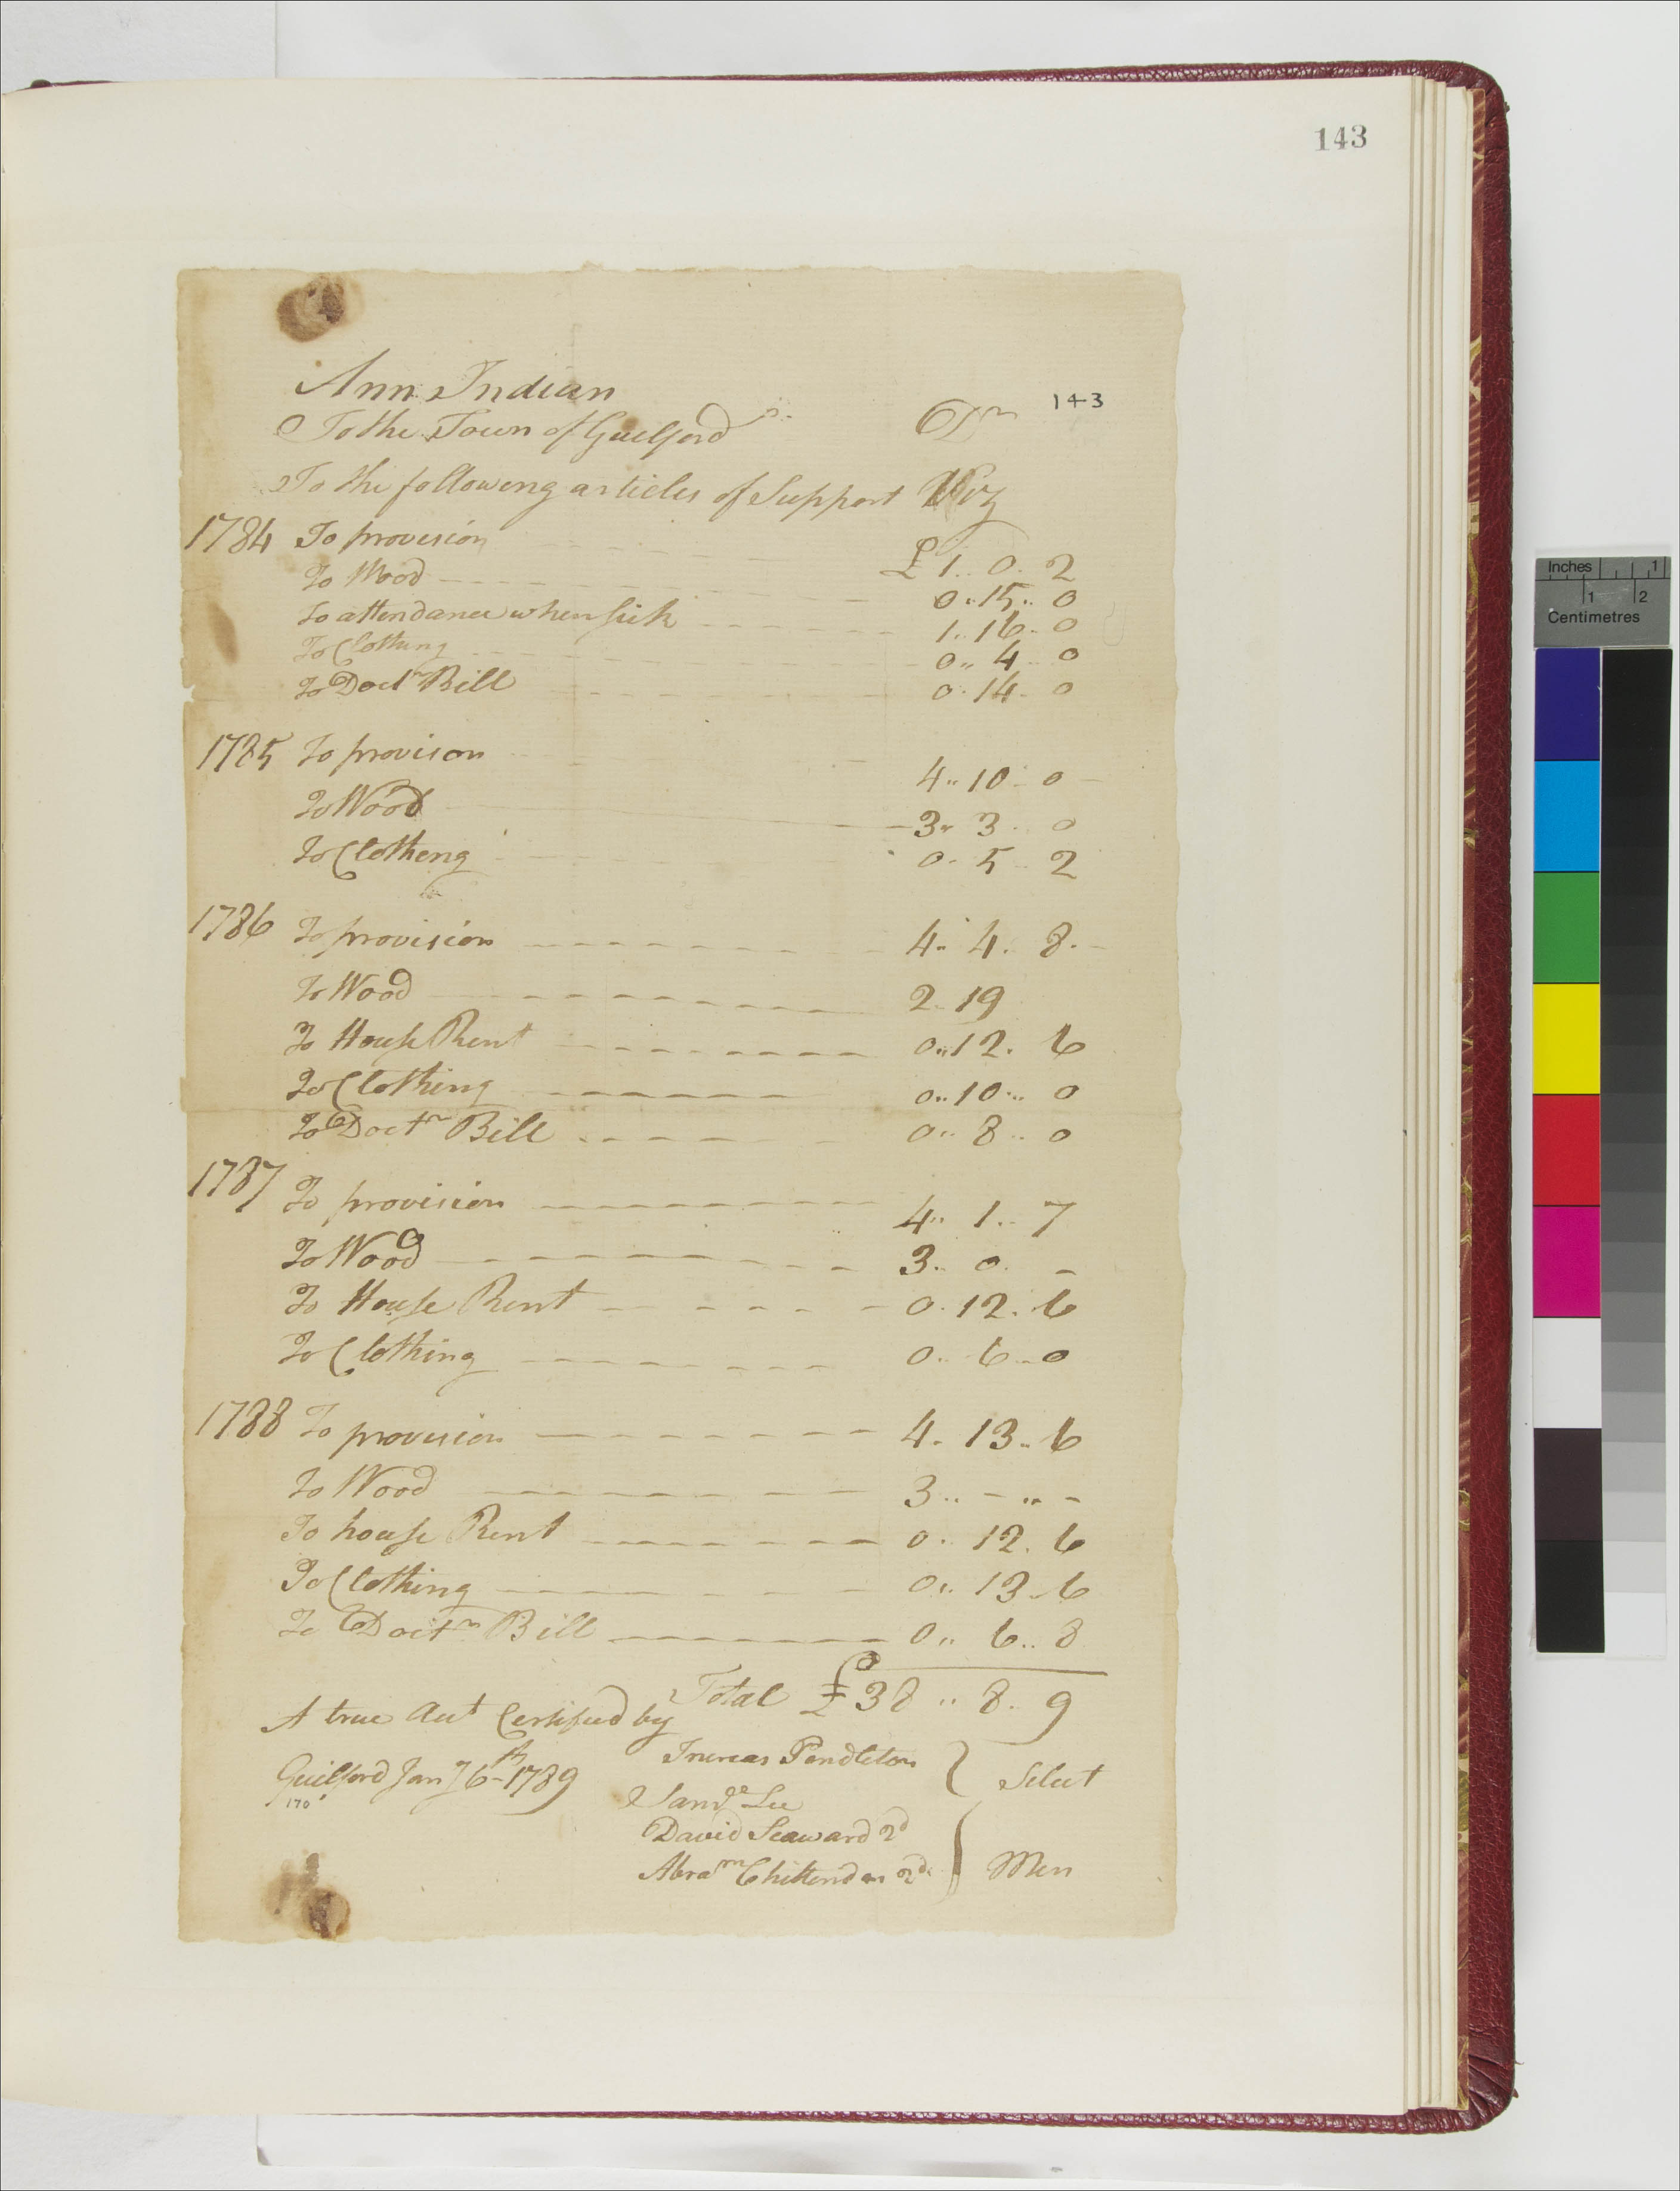 143
Ann Indian
To the Town of Guilford Dr 143
To the following articles of Support Viz
1784 To provision £1.. 0. 2
To Wood 0..15.. 0
To attendance when sick 1..16.. 0
To Clothing 0.. 4.. 0
To Doctr Bill 0.14.. 0
1785 To provison 4..10.. 0
To Wood 3.. 3. 0
To Clotheng 0.. 5.. 2
1786 To provision 4.. 4.. 8.
To Wood 2..19
To House Rent 0..12. 6
To Clothing 0..10... 0
To Doctr Bill 0.. 8.. 0
1787 To provision 4.. 1.. 7
To Wood 3.. 0. –
To House Rent 0.12. 6
To Clothing 0.. 6..0
1788 To provision 4.. 13..6
To Wood 3.. – .. –
To house Rent 0.. 12. 6
To Clothing 0.. 13..6
To Doctr Bill 0.. 6.. 8
Total £38.. 8.. 9
A true Acct Certifued by
Guilford Jany 6th 1789
Increas Pendleton
Select
Samll Lee
David Seaward 2d
Abram Chittenden 2d
Men
170
Inches 1
1 2
Centimetres